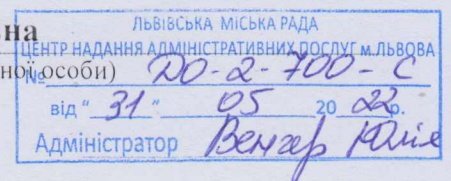 ЛЬВІВСЬКА МІСЬКА РАДА
на
ЦЕНТР НАДАННЯ АДМІНІСТРАТИВНИХ ПОСЛУГ м.ЛЬВОВА
ної особи)
№ ДО-2-700-С
від "31" 05 2022р.
Адміністратор Венгер Юлія